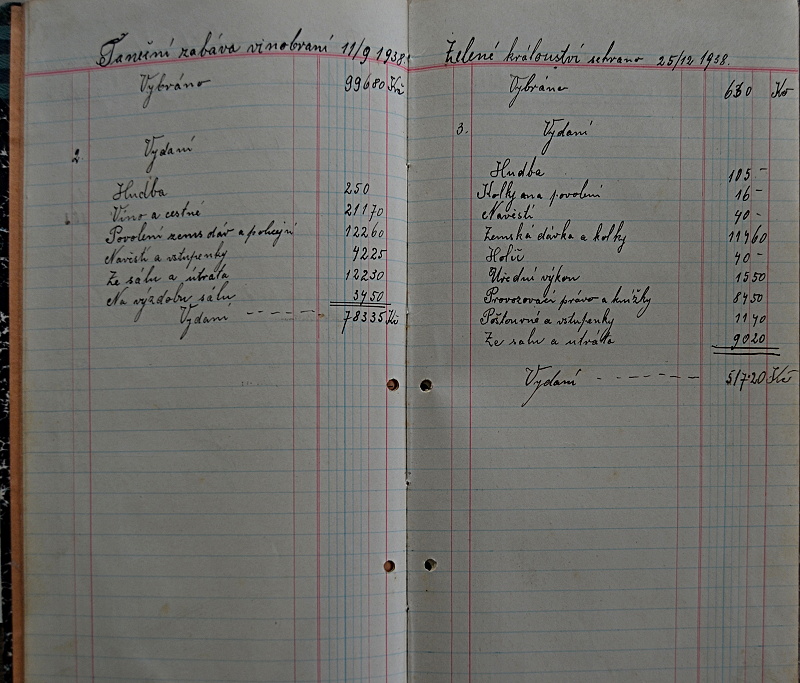 Taneční zabáva vinobraní 11/9 1938.
Vybráno 99680 Kč
2. Vydaní
Hudba 250
Vino a cestné 21170
Povolení zems dáv a policejní 12260
Navěsti a vstupenky 4225
Ze sálu a útrata 12230
Na výzdobu sálu 3450
Vydani - - - - - 78335 Kč
Zelené královstvi sehrano 25/12 1938.
Vybráno 630 Kč
3. Vydaní
Hudba 105 -
Kolky na povoleni 16 -
Navěsti 40 -
Zemská dávka a kolky 11960
Holič 40 -
Uřední výkon 1550
Provozovací právo a knížky 8450
Poštovné a vstupenky 1170
Ze salu a utráta 9020
Vydaní - - - - - - 51720 Kč